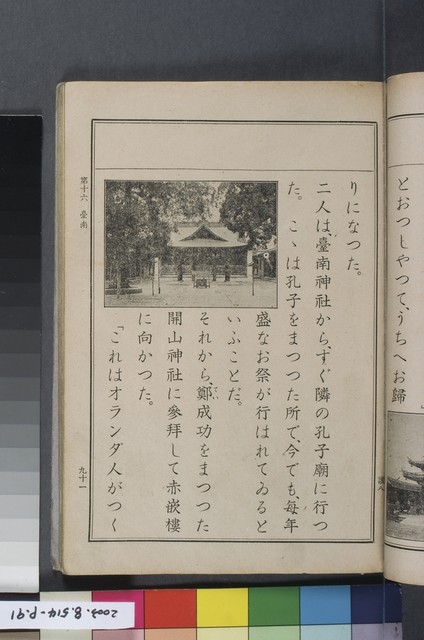 とおつしやつて、うちへお歸
りになつた。
二人は、臺南神社から、すぐ隣の孔子廟に行つ
た。こゝは孔子をまつつた所で、今でも、毎年
盛なお祭が行はれてゐると
いふことだ。
それから、鄭成功をまつつた
開山神社に參拜して赤嵌樓
に向かつた。
「これはオランダ人がつく
第十六 臺南
九十一
2003.8.514-P.91